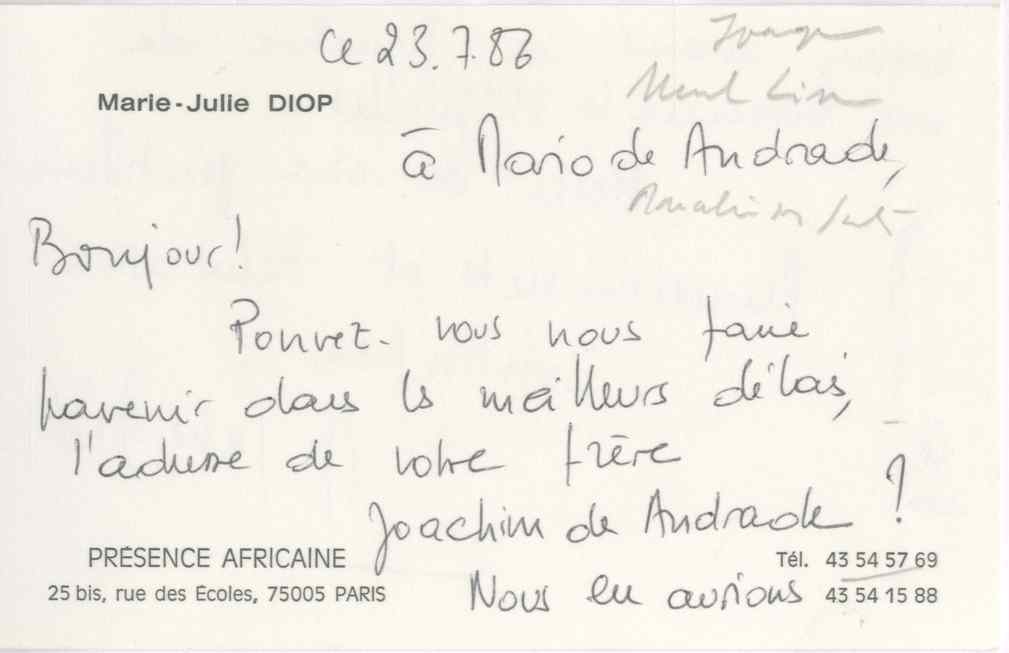 Ce 23.7.86
Marie-Julie DIOP
à Mario de Andrade,
Bonjour!
Pouvez-vous nous faire
parvenir dans les meilleurs délais,
l'adresse de votre frère
Joachim de Andrade ?
PRÉSENCE AFRICAINE
25 bis, rue des Écoles, 75005 PARIS
Tél. 43 54 57 69
43 54 15 88
Nous en aurions